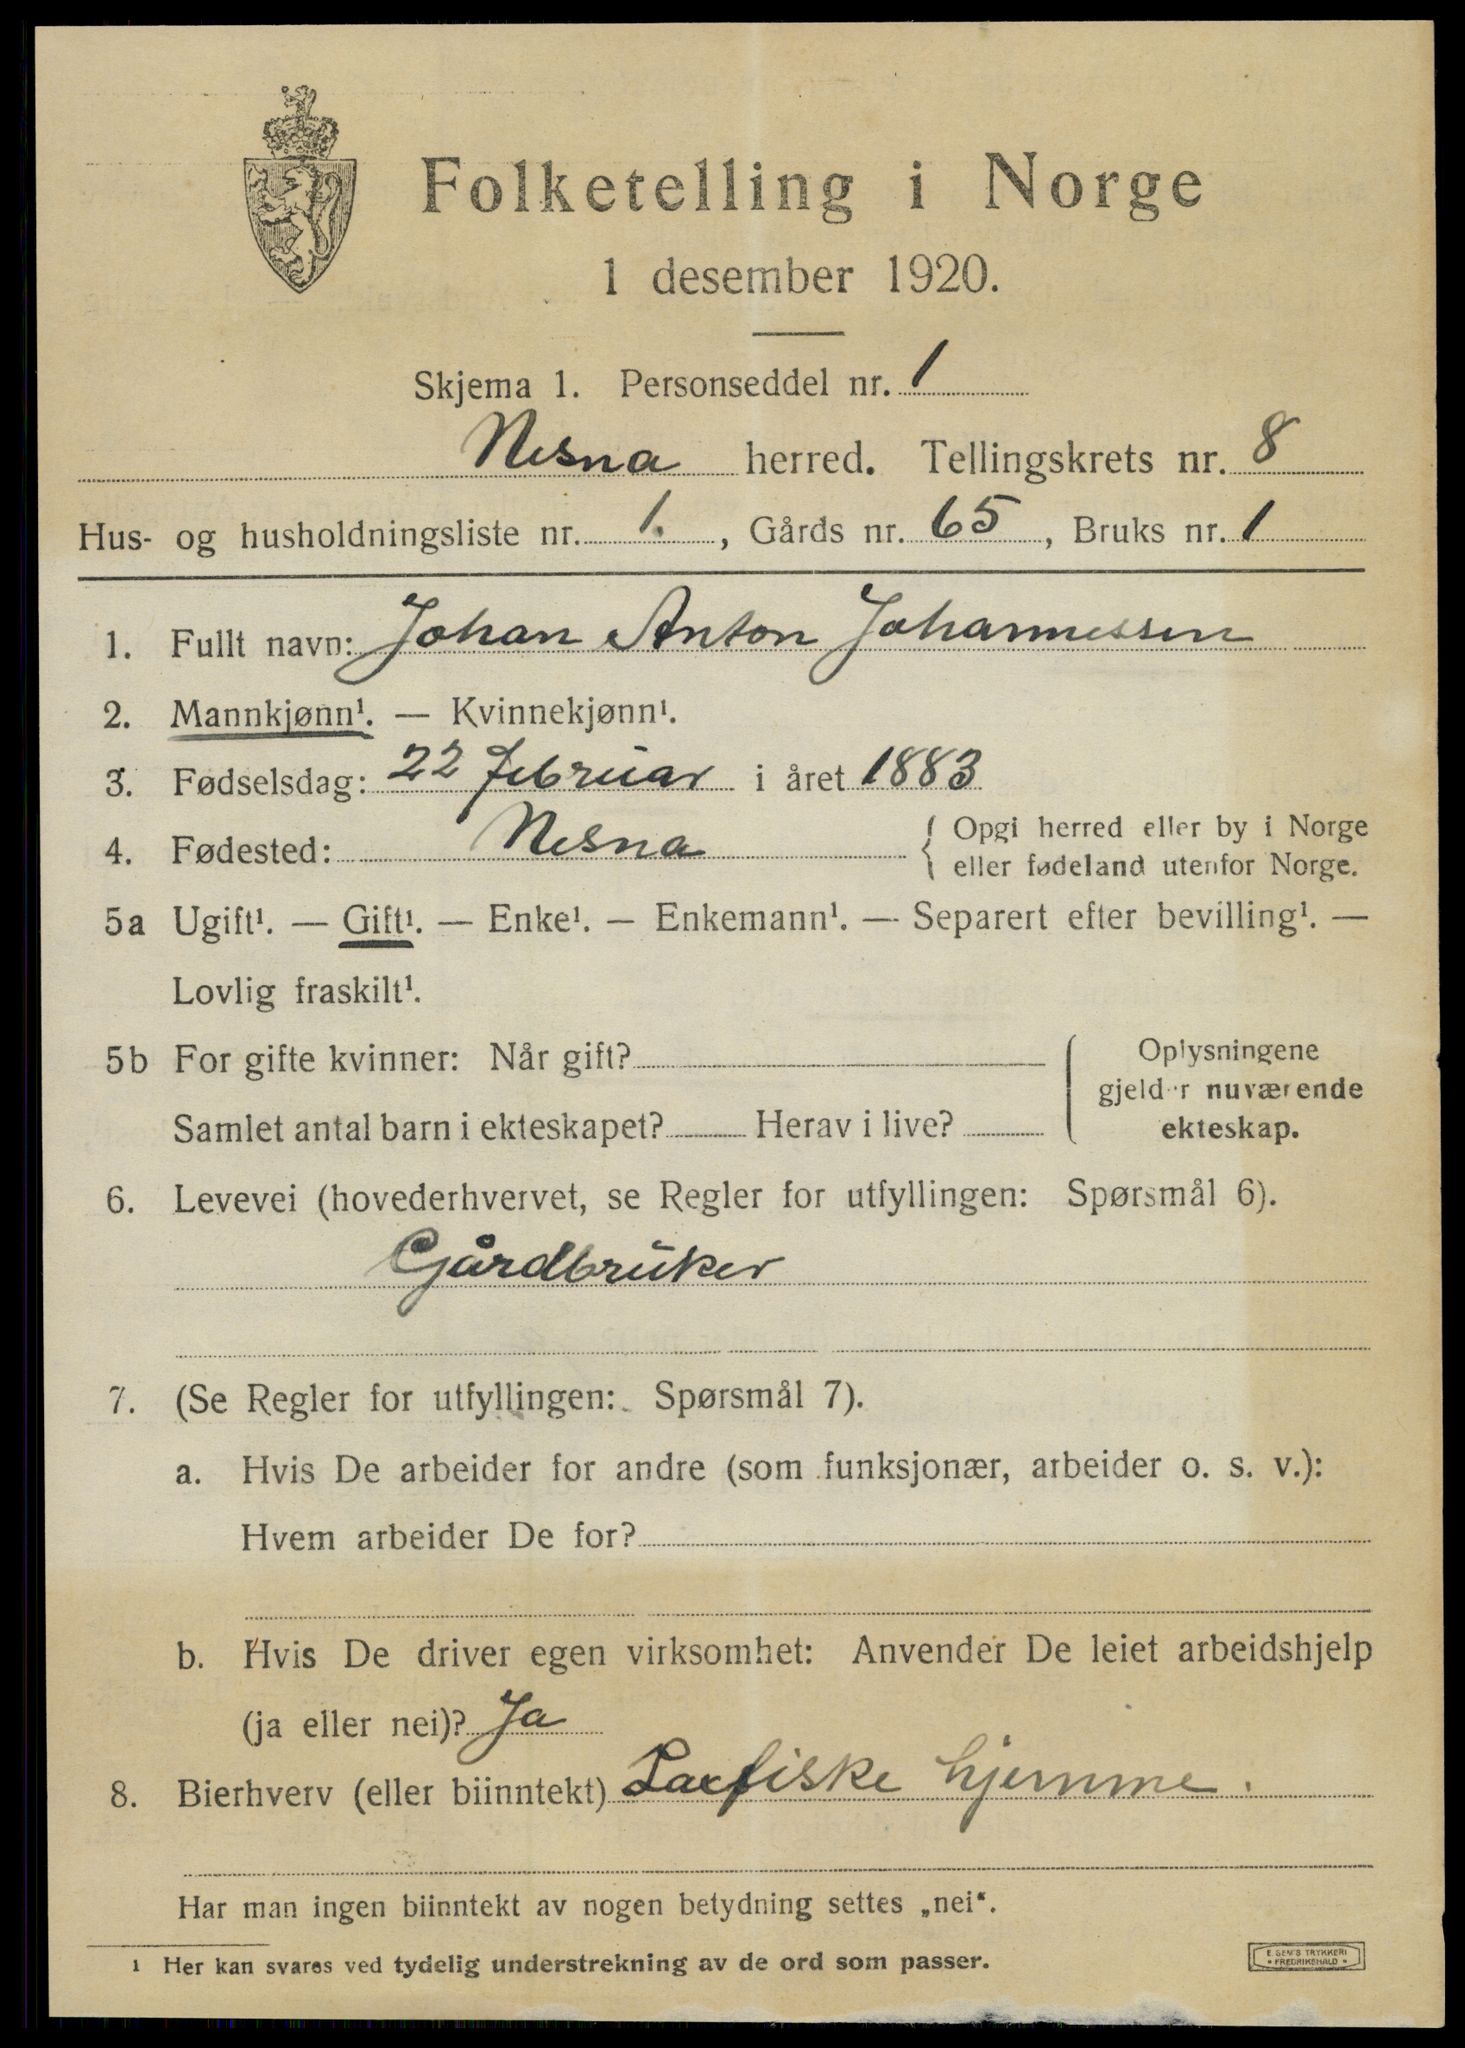 Folketelling i Norge
1 desember 1920.
Skjema 1. Personseddel nr. 1
Nesna herred. Tellingskrets nr. 8
Hus- og husholdningsliste nr. 1., Gårds nr. 65, Bruks nr. 1
1. Fullt navn: Johan Anton Johannessen
2. Mannkjønn¹. — Kvinnekjønn¹.
3. Fødselsdag: 22 februar i året 1883
4. Fødested: Nesna { Opgi herred eller by i Norge
eller fødeland utenfor Norge.
5a Ugift¹. — Gift¹. — Enke¹. — Enkemann¹. — Separert efter bevilling¹. —
Lovlig fraskilt¹.
5b For gifte kvinner: Når gift?
Samlet antal barn i ekteskapet? Herav i live?
Oplysningene
gjelder nuværende
ekteskap.
6. Levevei (hovederhvervet, se Regler for utfyllingen: Spørsmål 6).
Gårdbruker
7. (Se Regler for utfyllingen: Spørsmål 7).
a. Hvis De arbeider for andre (som funksjonær, arbeider o. s. v.):
Hvem arbeider De for?
b. Hvis De driver egen virksomhet: Anvender De leiet arbeidshjelp
(ja eller nei)? Ja
8. Bierhverv (eller biinntekt) Laxfiske hjemme.
Har man ingen biinntekt av nogen betydning settes „nei“.
1 Her kan svares ved tydelig understrekning av de ord som passer.
E. SEM'S TRYKKERI
• FREDRIKSHALD •